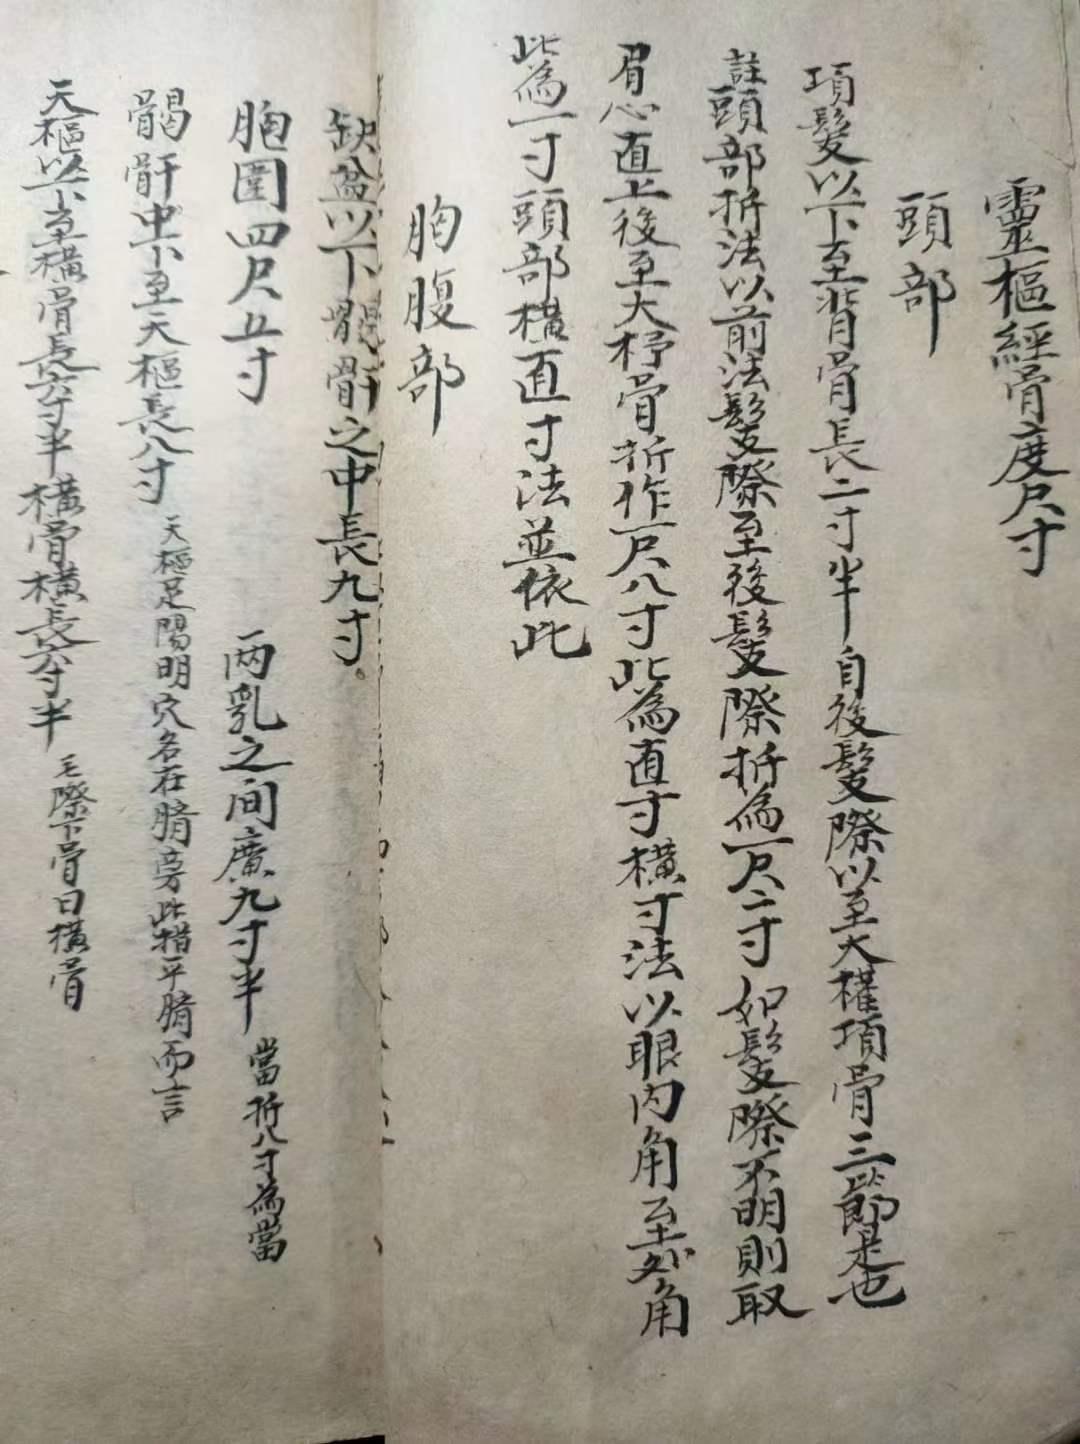 靈樞經骨度尺寸
頭部
項髮以下至背骨長二寸半 自後髮際以至大權項骨三節是也
註頭部折法以前法髮際至後髮際折為一尺二寸如髮際不明則取
眉心直上後至大杼骨折作一尺八寸此為直寸橫寸法以眼内角至外角
此為一寸頭部橫直寸法並依此
胸腹部
缺盆以下䯏骭之中長九寸。
胸圍四尺五寸 两乳之间廣九寸半 當折八寸為當
髃骭中下至天樞長八寸 天樞足陽明穴名在臍旁此措平臍而言
天樞以下至橫骨長六寸半橫骨橫長六寸半 毛際下骨曰橫骨